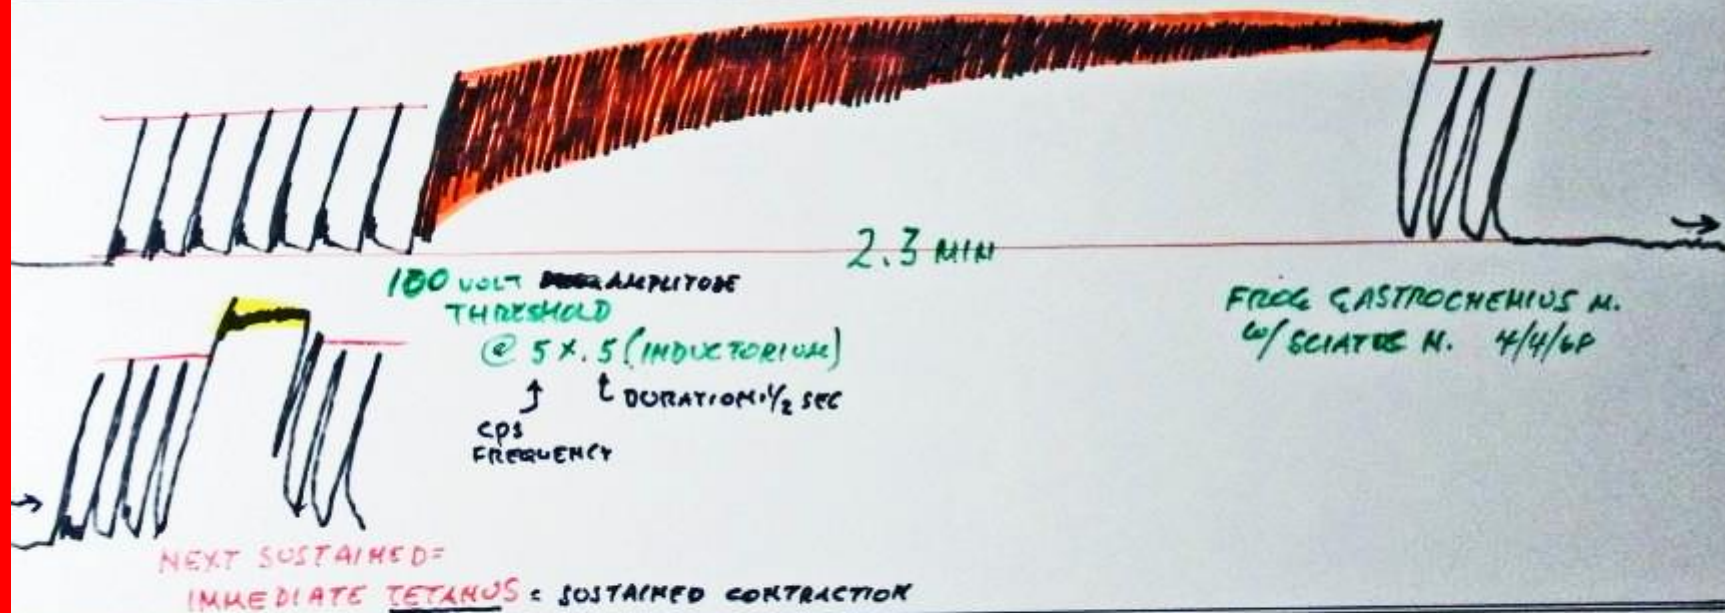 2.3 MIN
100 VOLT AMPLITUDE
THRESHOLD
@ 5 X .5 (INDUCTORIUM)
DURATION 1/2 SEC
CPS
FREQUENCY
FROG GASTROCHEMIUS M.
W/ SCIATIC N. 4/4/68
NEXT SUSTAINED=
IMMEDIATE TETANUS = SUSTAINED CONTRACTION